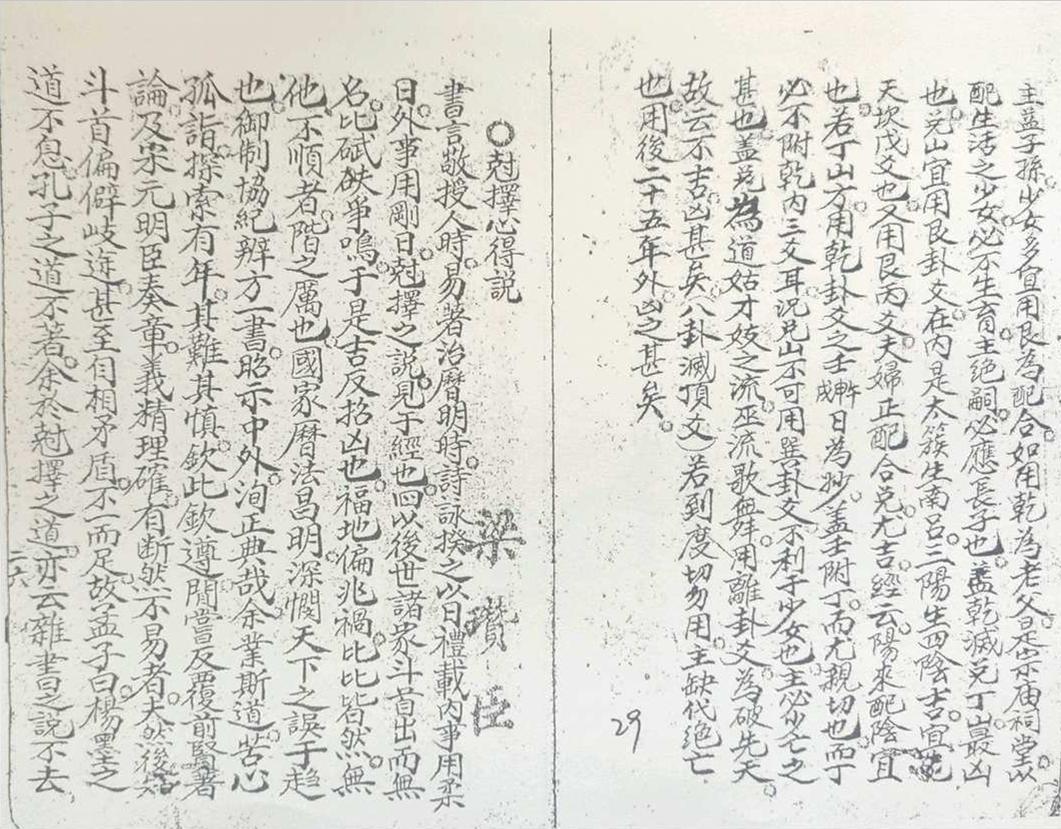 主益子孫少女多宜用艮為配合如用乾為老父是宗庙祠堂以
配生活之少女必不生育主絶嗣必應長子也蓋乾滅兑丁山最凶
也兑山宜用艮卦爻在内是太簇生南吕二陽生四陰吉宜
天坎戊爻也又用艮丙爻夫婦正配合兑尤吉經云陽來配陰宜
也若丁山方用乾卦爻之壬日為妙盖壬附丁而尤親切也而丁
必不附乾内三爻耳况兑山不可用巽卦爻不利于少女也主必少亡之
甚也盖兑為道姑才妓之流巫流歌舞用離卦爻為破先天
故云不吉凶甚矣八卦滅頂爻若到度切勿用主缺代绝亡
也用後二十五年外凶之甚矣
29
○尅擇心得説
梁瓚臣
書言敬授人時易著治曆明時詩詠揆之以日禮載内事用柔
日外事用剛日尅擇之説見于經也回以後世諸家斗首出而無
名比碔砆爭鳴于是吉反招凶也福地偏兆禍比比皆然無
他不順者階之厲也國家曆法昌明深憫天下之誤于趋
也御制協紀辨方一書昭示中外洵正典哉余業斯道苦心
孤詣探索有年其難其慎欽此欽遵閒嘗反覆前賢著
論及宋元明臣奏章義精理確有断然不易者夫然後知
斗首偏僻岐途甚至自相矛盾不一而足故孟子曰楊墨之
道不息孔子之道不著余於尅擇之道亦云雜書之説不去
二六